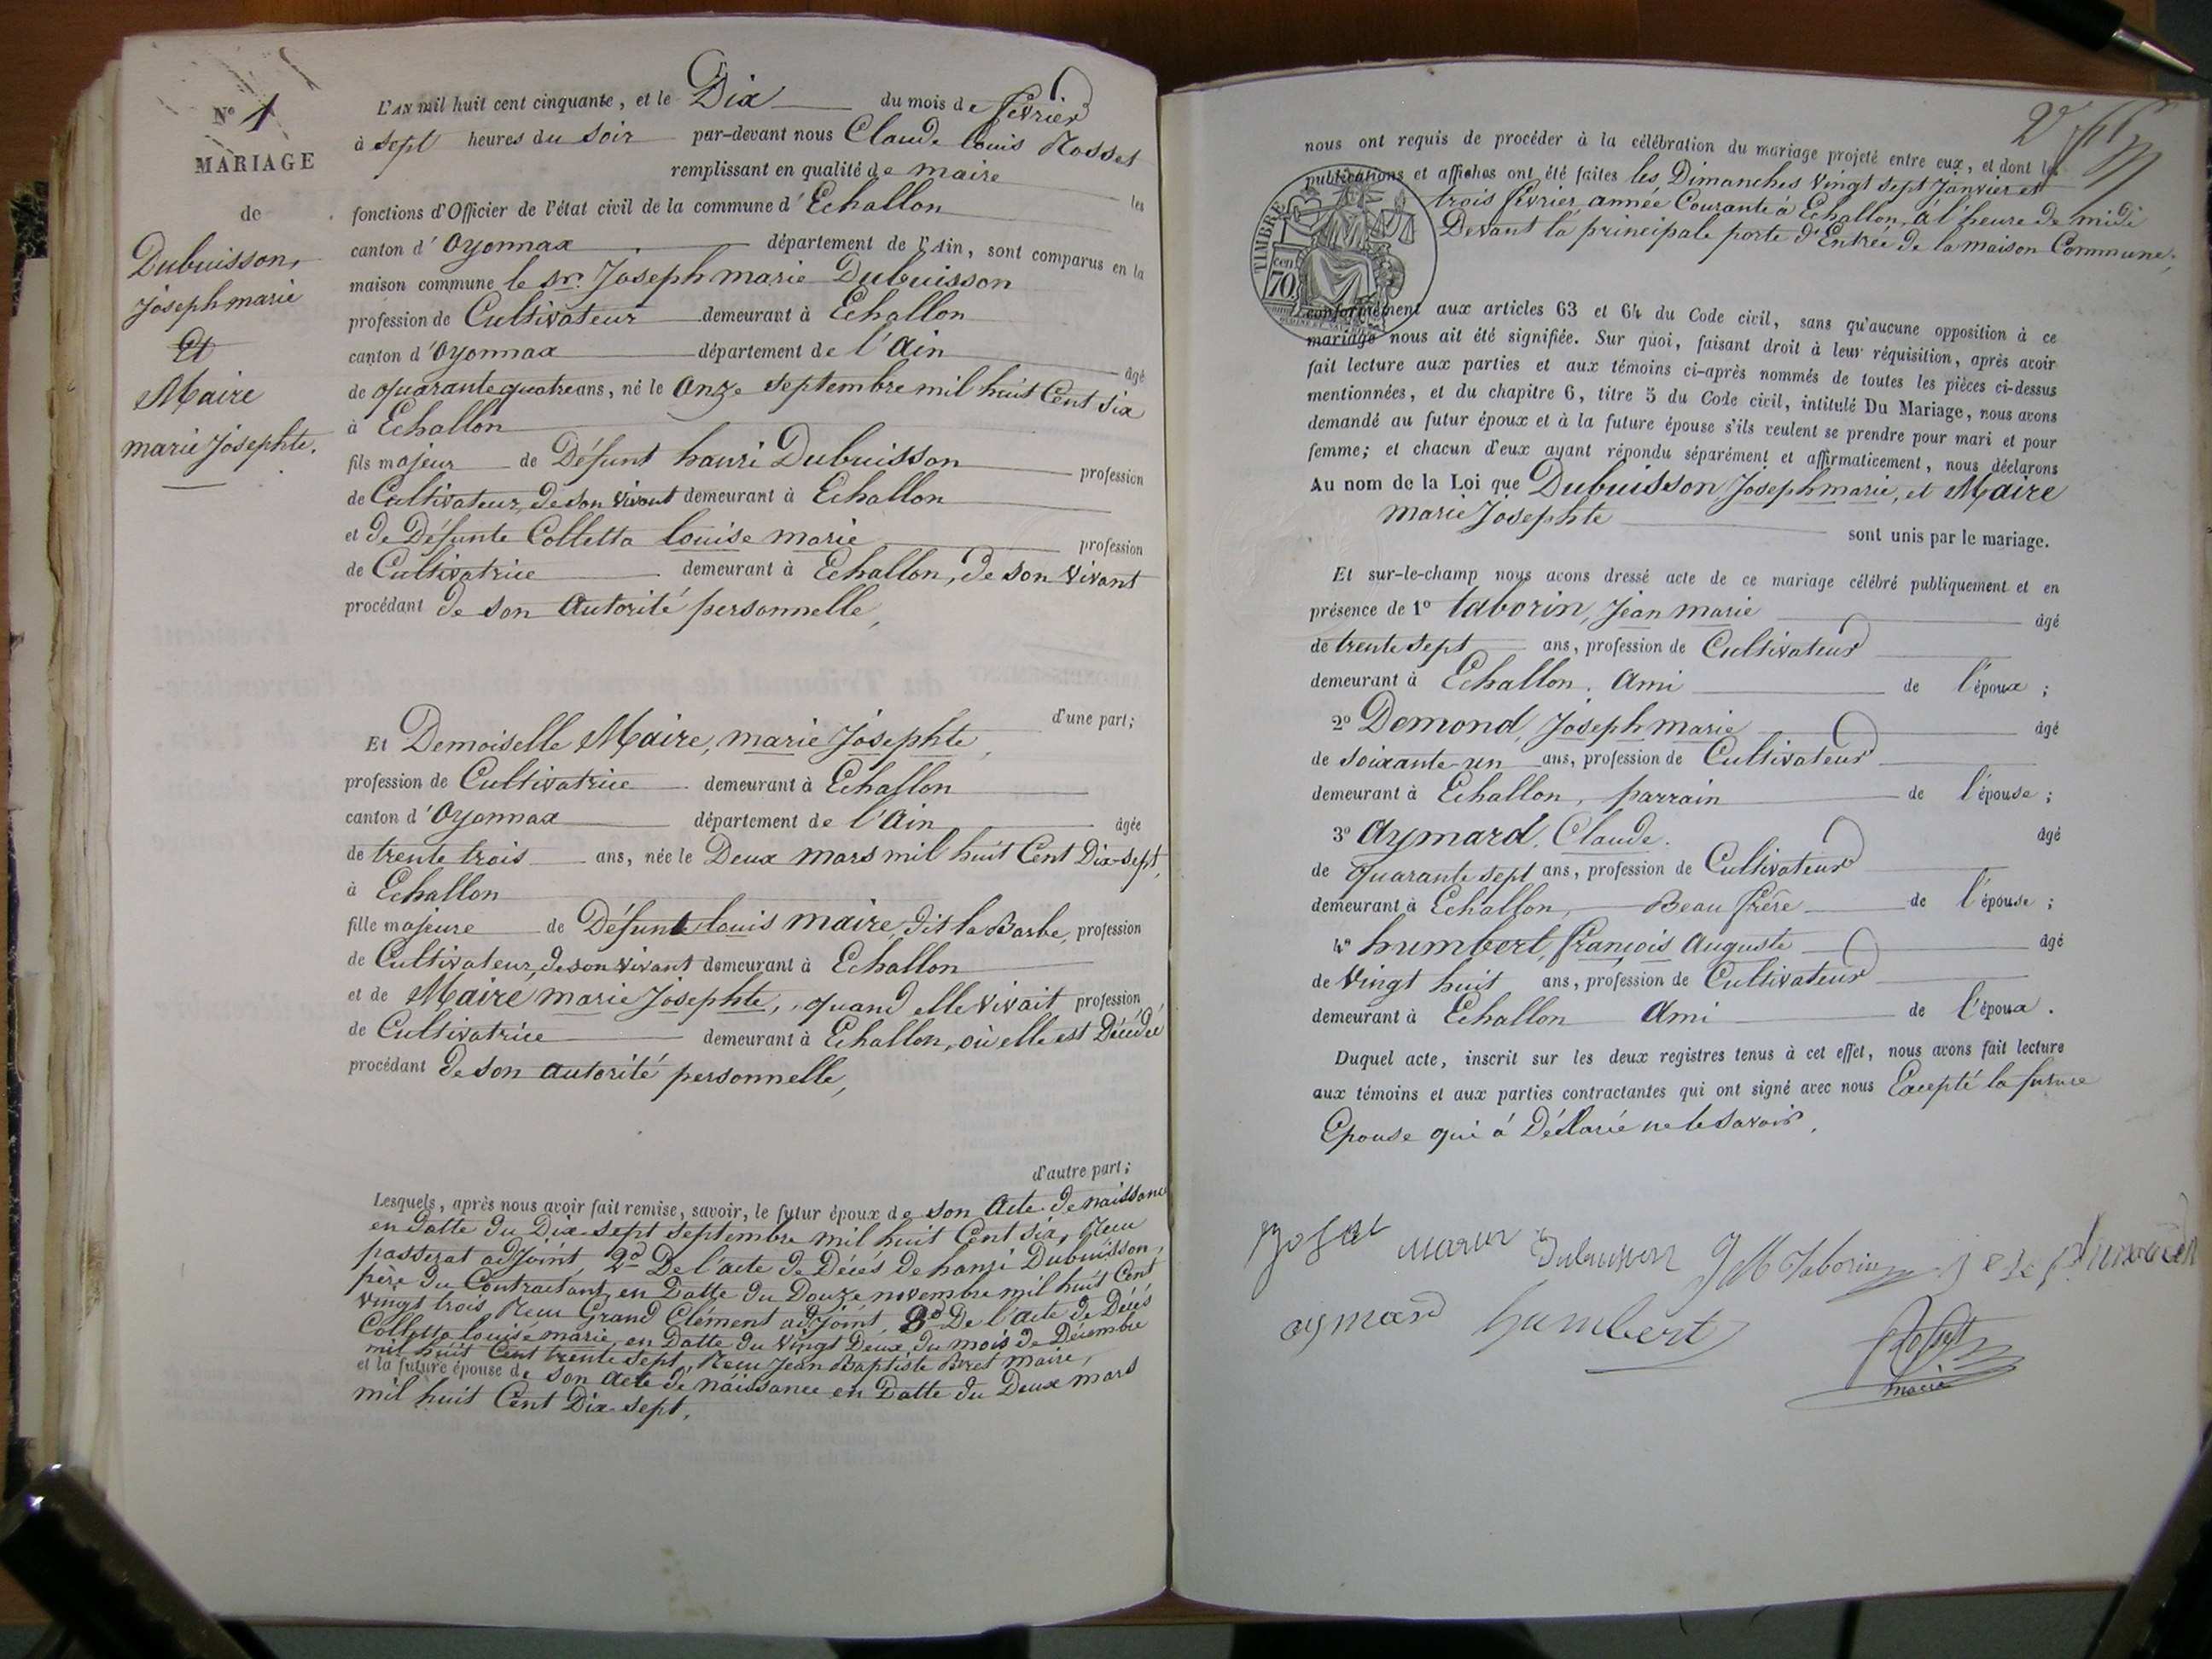 N° 1
MARIAGE
de
Dubuisson,
joseph marie
Et
Maire
marie josephte.
L'AN mil huit cent cinquante, et le Dix du mois de février
à sept heures du soir par-devant nous Claude louis Rosset
remplissant en qualité de maire les
fonctions d'Officier de l'état civil de la commune d'Echallon
canton d'Oyonnax département de l'Ain, sont comparus en la
maison commune le sr. Joseph marie Dubuisson
profession de Cultivateur demeurant à Echallon
canton d'Oyonnax département de l'Ain âgé
de quarante quatre ans, né le onze septembre mil huit Cent six
à Echallon
fils majeur de Défunt hanri Dubuisson profession
de Cultivateur, de son vivant demeurant à Echallon
et de Défunte Colletta louise marie profession
de Cultivatrice demeurant à Echallon, de son vivant
procédant de son autorité personnelle,
d'une part;
Et Demoiselle Maire, marie Josephte,
profession de Cultivatrice demeurant à Echallon
canton d'Oyonnax département de l'Ain âgée
de trente trois ans, née le Deux mars mil huit Cent Dix-sept,
à Echallon
fille majeure de Défunt louis maire, dit la Barbe, profession
de Cultivateur, de son vivant demeurant à Echallon
et de Maire marie Josephte, quand elle vivait profession
de Cultivatrice demeurant à Echallon, où elle est Décédée
procédant de son autorité personnelle,
d'autre part;
Lesquels, après nous avoir fait remise, savoir, le futur époux de son Acte de naissance
en Datte du Dix-sept septembre mil huit Cent six, Reçu
passerat adjoint, 2° De l'acte de Décés de hanri Dubuisson,
père du Contractant, en Datte du Douze novembre mil huit Cent
vingt trois, Reçu Grand Clément adjoint, 3° De l'acte de Décés
Colletta louise marie, en Datte du vingt Deux du mois de Décembre
mil huit Cent trente sept, Reçu Jean Baptiste maire,
et la future épouse de son acte de naissance en Datte du Deux mars
mil huit Cent Dix-sept.
2
nous ont requis de procéder à la célébration du mariage projeté entre eux, et dont les
publications et affiches ont été faites les Dimanches vingt sept Janvier et
trois février année Courante à Echallon, à l'heure de midi
Devant la principale porte d'Entrée de la maison Commune,
TIMBRE
70 cen
conformément aux articles 63 et 64 du Code civil, sans qu'aucune opposition à ce
mariage nous ait été signifiée. Sur quoi, faisant droit à leur réquisition, après avoir
fait lecture aux parties et aux témoins ci-après nommés de toutes les pièces ci-dessus
mentionnées, et du chapitre 6, titre 5 du Code civil, intitulé Du Mariage, nous avons
demandé au futur époux et à la future épouse s'ils veulent se prendre pour mari et pour
femme; et chacun d'eux ayant répondu séparément et affirmativement, nous déclarons
Au nom de la Loi que Dubuisson, Joseph marie, et Maire
marie Josephte sont unis par le mariage.
Et sur-le-champ nous avons dressé acte de ce mariage célébré publiquement et en
présence de 1° taborin, Jean marie âgé
de trente sept ans, profession de Cultivateur
demeurant à Echallon. Ami de l'époux;
2° Demond, Joseph marie âgé
de soixante-un ans, profession de Cultivateur
demeurant à Echallon, parrain de l'épouse;
3° Aymard, Claude. âgé
de quarante sept ans, profession de Cultivateur
demeurant à Echallon, Beau frère de l'épouse;
4° humbert, françois Auguste âgé
de vingt huit ans, profession de Cultivateur
demeurant à Echallon Ami de l'époux.
Duquel acte, inscrit sur les deux registres tenus à cet effet, nous avons fait lecture
aux témoins et aux parties contractantes qui ont signé avec nous Excepté la future
Epouse qui á Déclaré ne le savoir.
marie Dubuisson J M Taborin
aymard humbert Rosset
maire